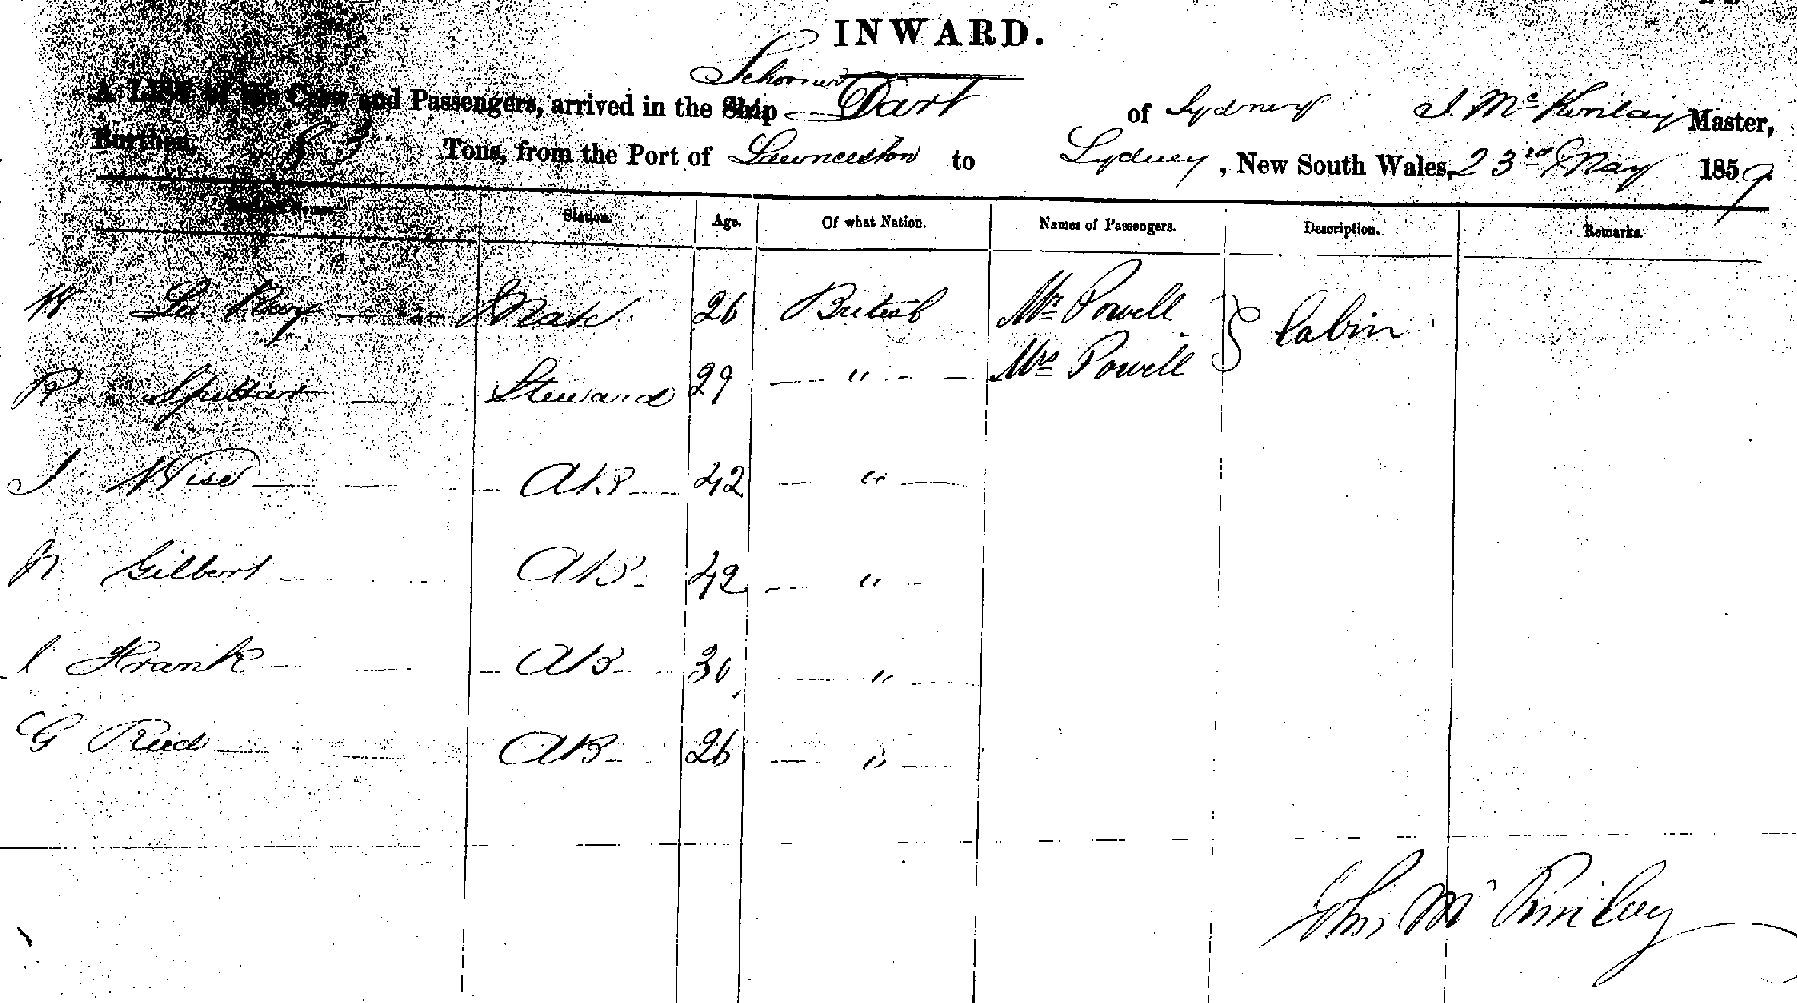 INWARD.
Schooner
A LIST of the Crew and Passengers, arrived in the Ship Dart of Sydney J. McKinlay Master,
Burthen, 83 Tons, from the Port of Launceston to Sydney, New South Wales, 23rd May 1859.
Station. Age. Of what Nation. Names of Passengers. Description. Remarks.
W Mate 26 British Mr Powell Cabin
Mrs Powell
R Steward 29 "
J Wise AB 42 "
Gilbert AB 42 "
Frank AB 30 "
G Reed AB 26 "
John McKinlay